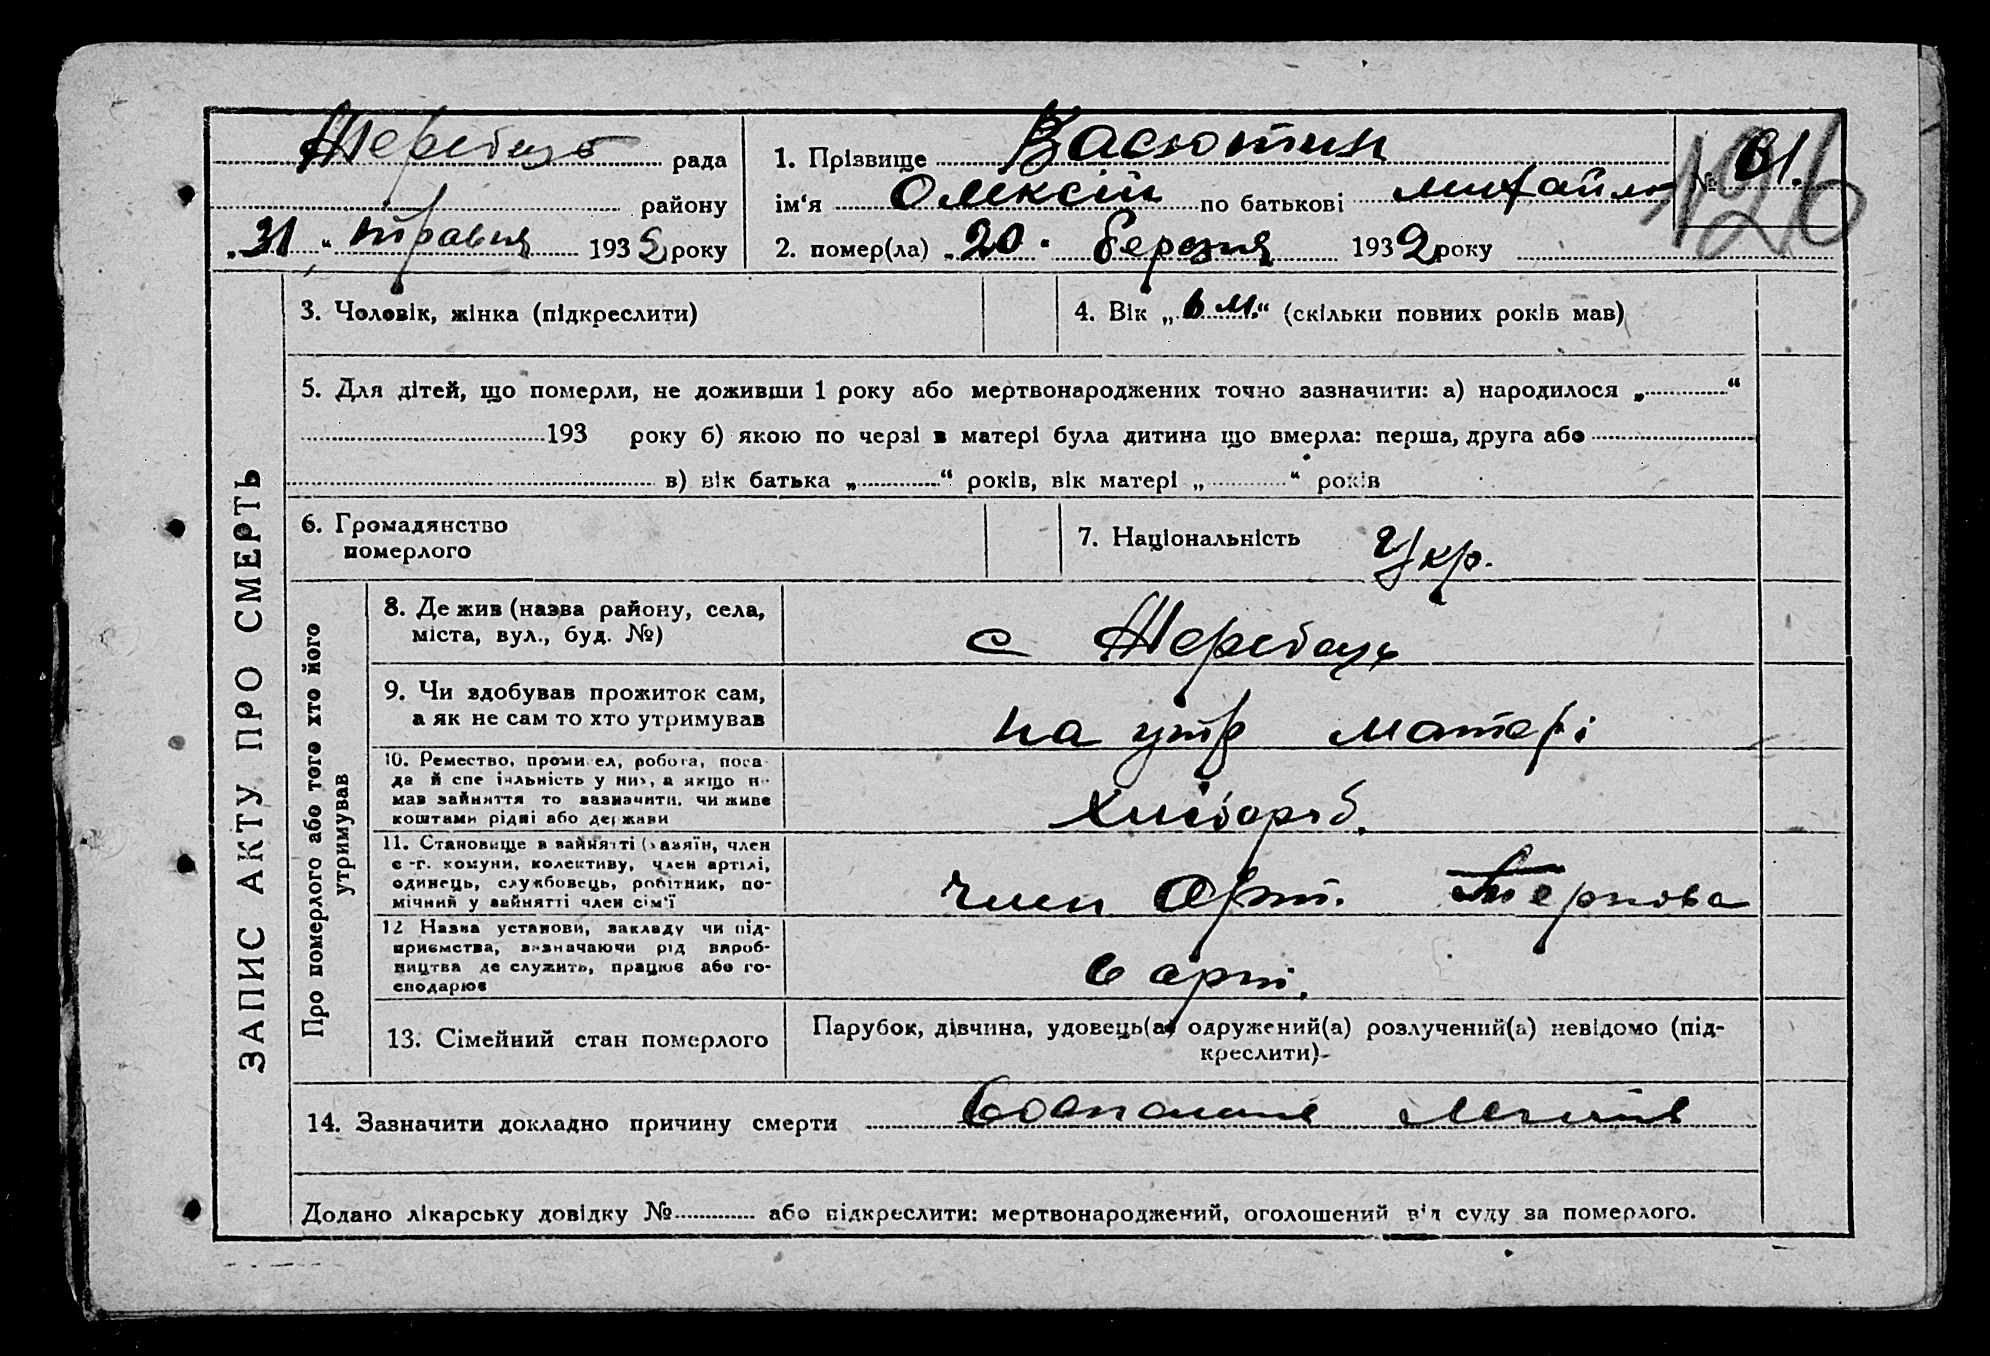 Жеребець рада
району
„31“ травня 1932 року
1. Прізвище Васютин
ім'я Олексій по батькові михайло
2. помер(ла) „20“ березня 1932 року
№ 61.
126
ЗАПИС АКТУ ПРО СМЕРТЬ
3. Чоловік, жінка (підкреслити)
4. Вік „6 м.“ (скільки повних років мав)
5. Для дітей, що померли, не доживши 1 року або мертвонароджених точно зазначити: а) народилося „ “
193 року б) якою по черзі в матері була дитина що вмерла: перша, друга або
в) вік батька „ “ років, вік матері „ “ років
6. Громадянство
померлого
7. Національність Укр.
Про померлого або того хто його
утримував
8. Де жив (назва району, села,
міста, вул., буд. №)
с Жеребець
9. Чи здобував прожиток сам,
а як не сам то хто утримував
на утр матері
10. Ремество, промисел, робота, поса-
да й спеціяльність у них, а якщо не
мав зайняття то зазначити, чи живе
коштами рідні або держави
хлібороб.
11. Становище в зайнятті (хазяїн, член
с-г. комуни, колективу, член артілі,
одинець, службовець, робітник, по-
мічний у зайнятті член сім'ї
член Арт. Тернова
12 Назва установи, закладу чи під-
приємства, визначаючи рід вироб-
ництва де служить, працює або го-
сподарює
в арт.
13. Сімейний стан померлого
Парубок, дівчина, удовець(а) одружений(а) розлучений(а) невідомо (під-
креслити)-
14. Зазначити докладно причину смерти
Додано лікарську довідку № або підкреслити: мертвонароджений, оголошений від суду за померлого.